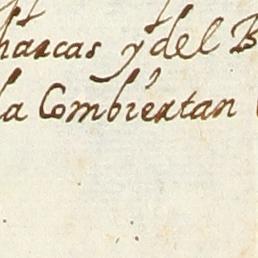 harcas y del B
la Combiertan